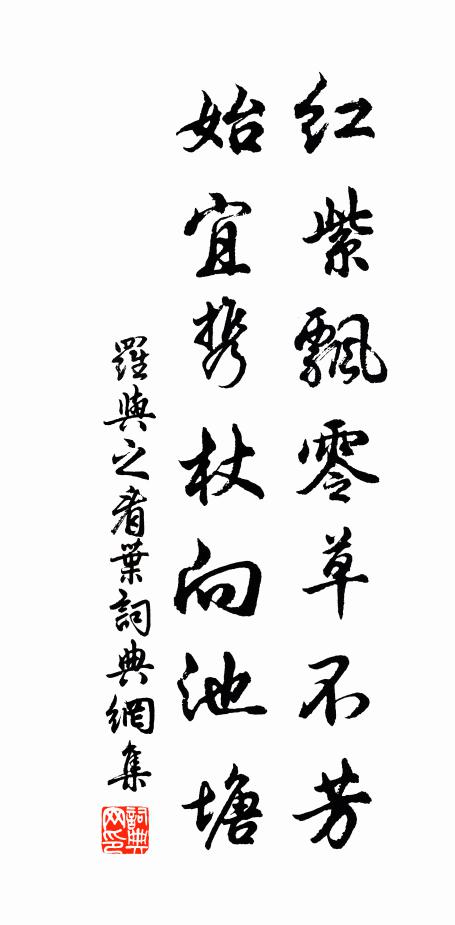 紅紫飄零草不芳
始宜携杖向池塘
羅與之看葉詞典網集
詞典网印